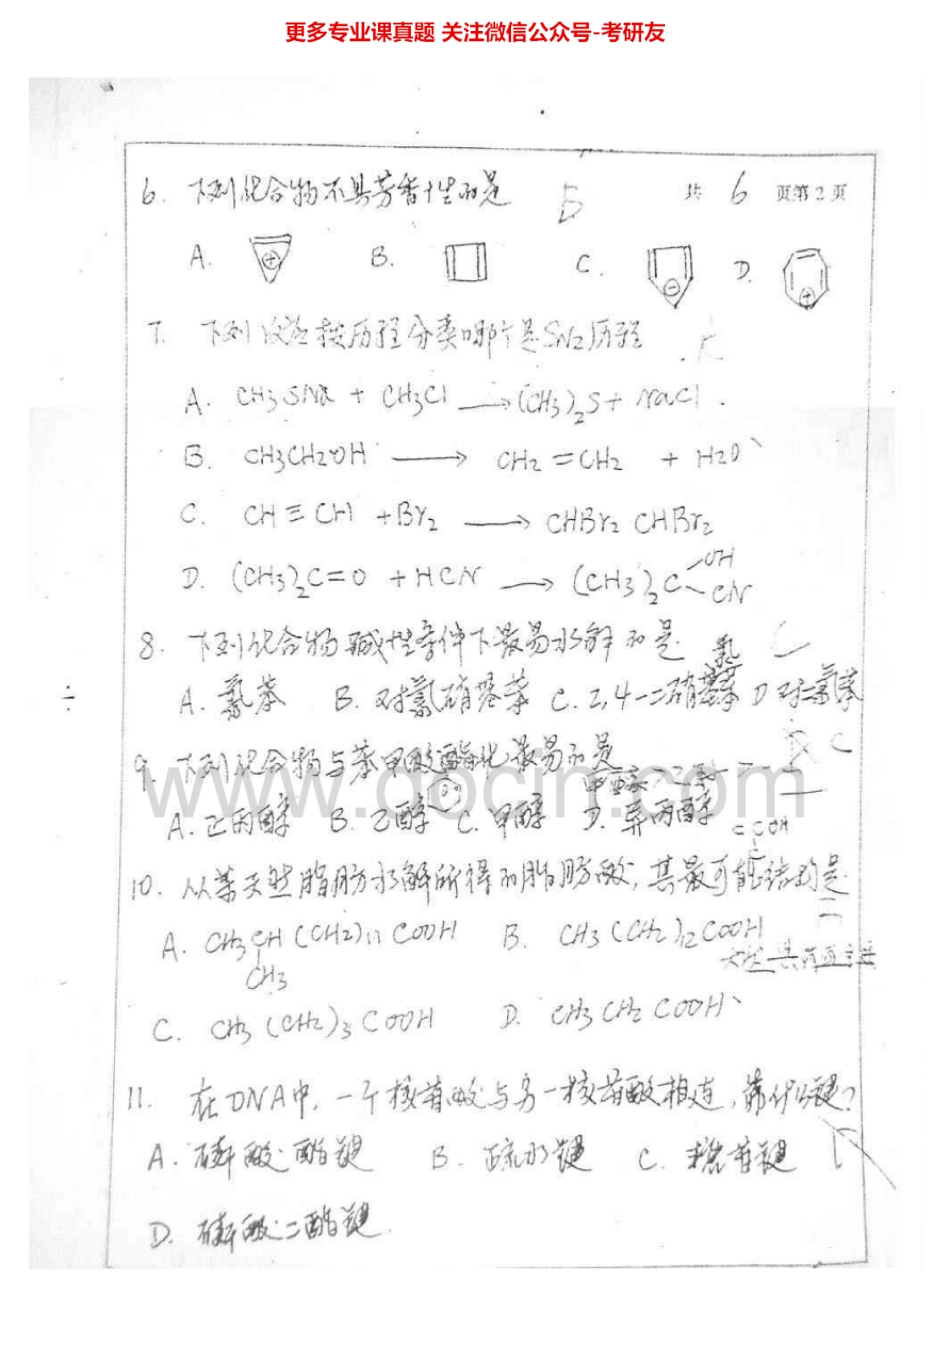 更多专业课真题 关注微信公众号-考研友
6. 下列化合物不具芳香性的是 B 共 6 页第 2 页
A. B. C. D.
7. 下列 反应按历程分类哪个是SN2历程
A. CH3SNa + CH3Cl → (CH3)2S + NaCl.
B. CH3CH2OH → CH2=CH2 + H2O
C. CH≡CH + Br2 → CHBr2 CHBr2
D. (CH3)2C=O + HCN → (CH3)2C OH CN
8. 下列化合物碱性条件下最易水解的是
A. 氯苯 B. 对氯硝基苯 C. 2,4-二硝基氯苯 D 对二氯苯
9. 下列化合物与苯甲酸酯化最易的是
www.docin.com
A. 正丙醇 B. 乙醇 C. 甲醇 D. 异丙醇
10. 从某天然脂肪水解所得的脂肪酸, 其最可能结构是
A. CH3CH(CH2)11COOH B. CH3(CH2)12COOH
CH3
C. CH3(CH2)3COOH D. CH3CH2COOH
11. 在DNA中, 一个核苷酸与另一核苷酸相连, 靠什么键?
A. 磷酸酯键 B. 疏水键 C. 糖苷键
D. 磷酸二酯键